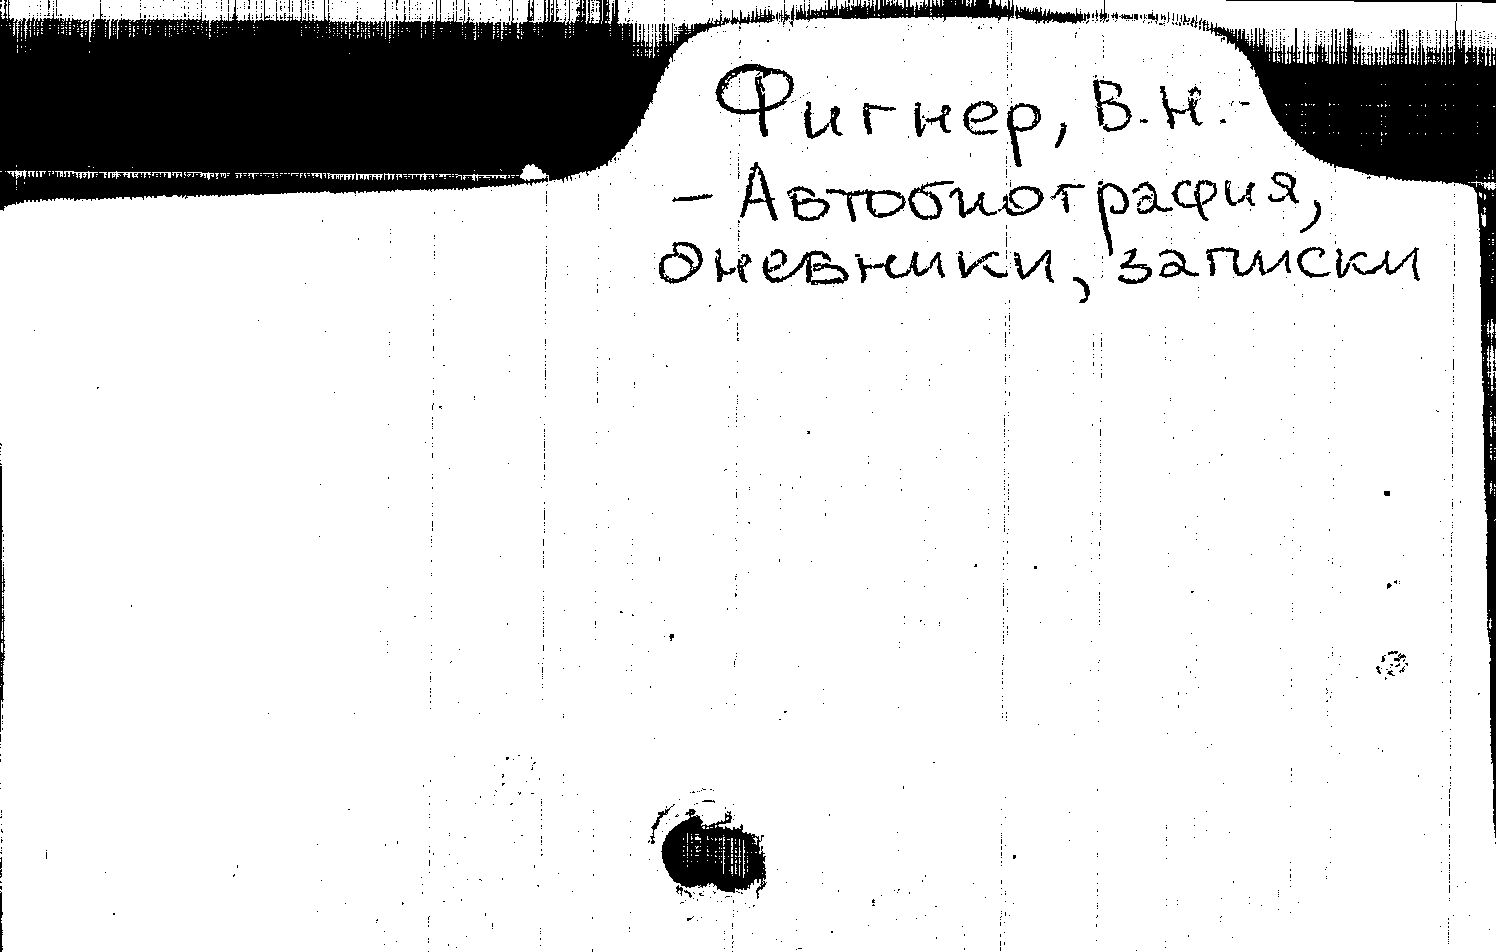 Фигнер, В.Н. -
- Автобиография,
дневники, записки